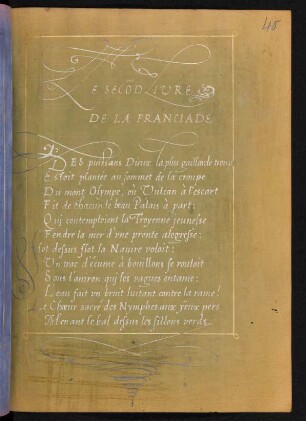 45
LE SECOD LIVRE
DE LA FRANCIADE
DES puissans Dieux la plus gaillarde trope
Estoit plantée au sommet de la croupe
Du mont Olympe, où Vulcan à l'escart
Fit de chacun le beau Palais à part:
Qui contemploient la Troyenne jeunesse
Fendre la mer d'une pronte alegresse:
flot dessus flot la Navire voloit:
Un trac d'écume à bouillons se rouloit
Sous l'aviron qui les vagues entame:
L'eau fait un bruit luitant contre la rame!
Le Chœur sacre des Nymphes aux yeux pers
Menant le bal dessus les sillons verds